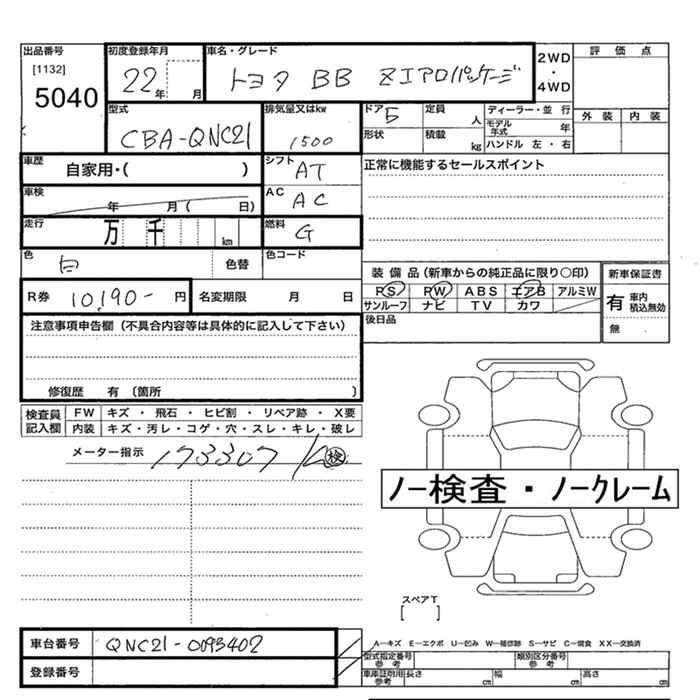 出品番号 初度登録年月 車名・グレード 2WD・4WD 評価点
[1132]
5040 22年 月 トヨタ BB Zエアロパッケージ
型式 排気量又はkw ドア 5 定員 人 ディーラー・並行 外装 内装
CBA-QNC21 1500 形状 積載 kg モデル年式 年
ハンドル 左・右
車歴 自家用・( ) シフト AT 正常に機能するセールスポイント
車検 年 月( 日) AC AC
走行 万 千 km 燃料 G
色 白 色替 色コード
装備品(新車からの純正品に限り○印) 新車保証書
PS PW ABS エアB アルミW 有 車内積込無効
サンルーフ ナビ TV カワ 無
R券 10,190- 円 名変期限 月 日 後日品
注意事項申告欄(不具合内容等は具体的に記入して下さい)
修復歴 有〔箇所 〕
検査員記入欄 FW キズ・飛石・ヒビ割・リペア跡・X要
内装 キズ・汚レ・コゲ・穴・スレ・キレ・破レ
メーター指示 173307 K 検
ノー検査・ノークレーム
スペアT
[ ]
車台番号 QNC21-0093402 A-キズ E-エクボ U-凹み W-補修跡 S-サビ C-腐食 XX-交換済
型式指定番号 参考 類別区分番号 参考
登録番号 車庫証明用 参考 長さ cm 幅 cm 高さ cm